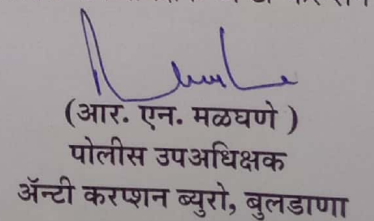 (आर. एन. मळघणे )
पोलीस उपअधिक्षक
ॲन्टी करप्शन ब्युरो, बुलडाणा